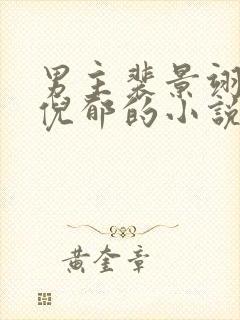 男主裴景翊
倪郁的小說
黃奎章